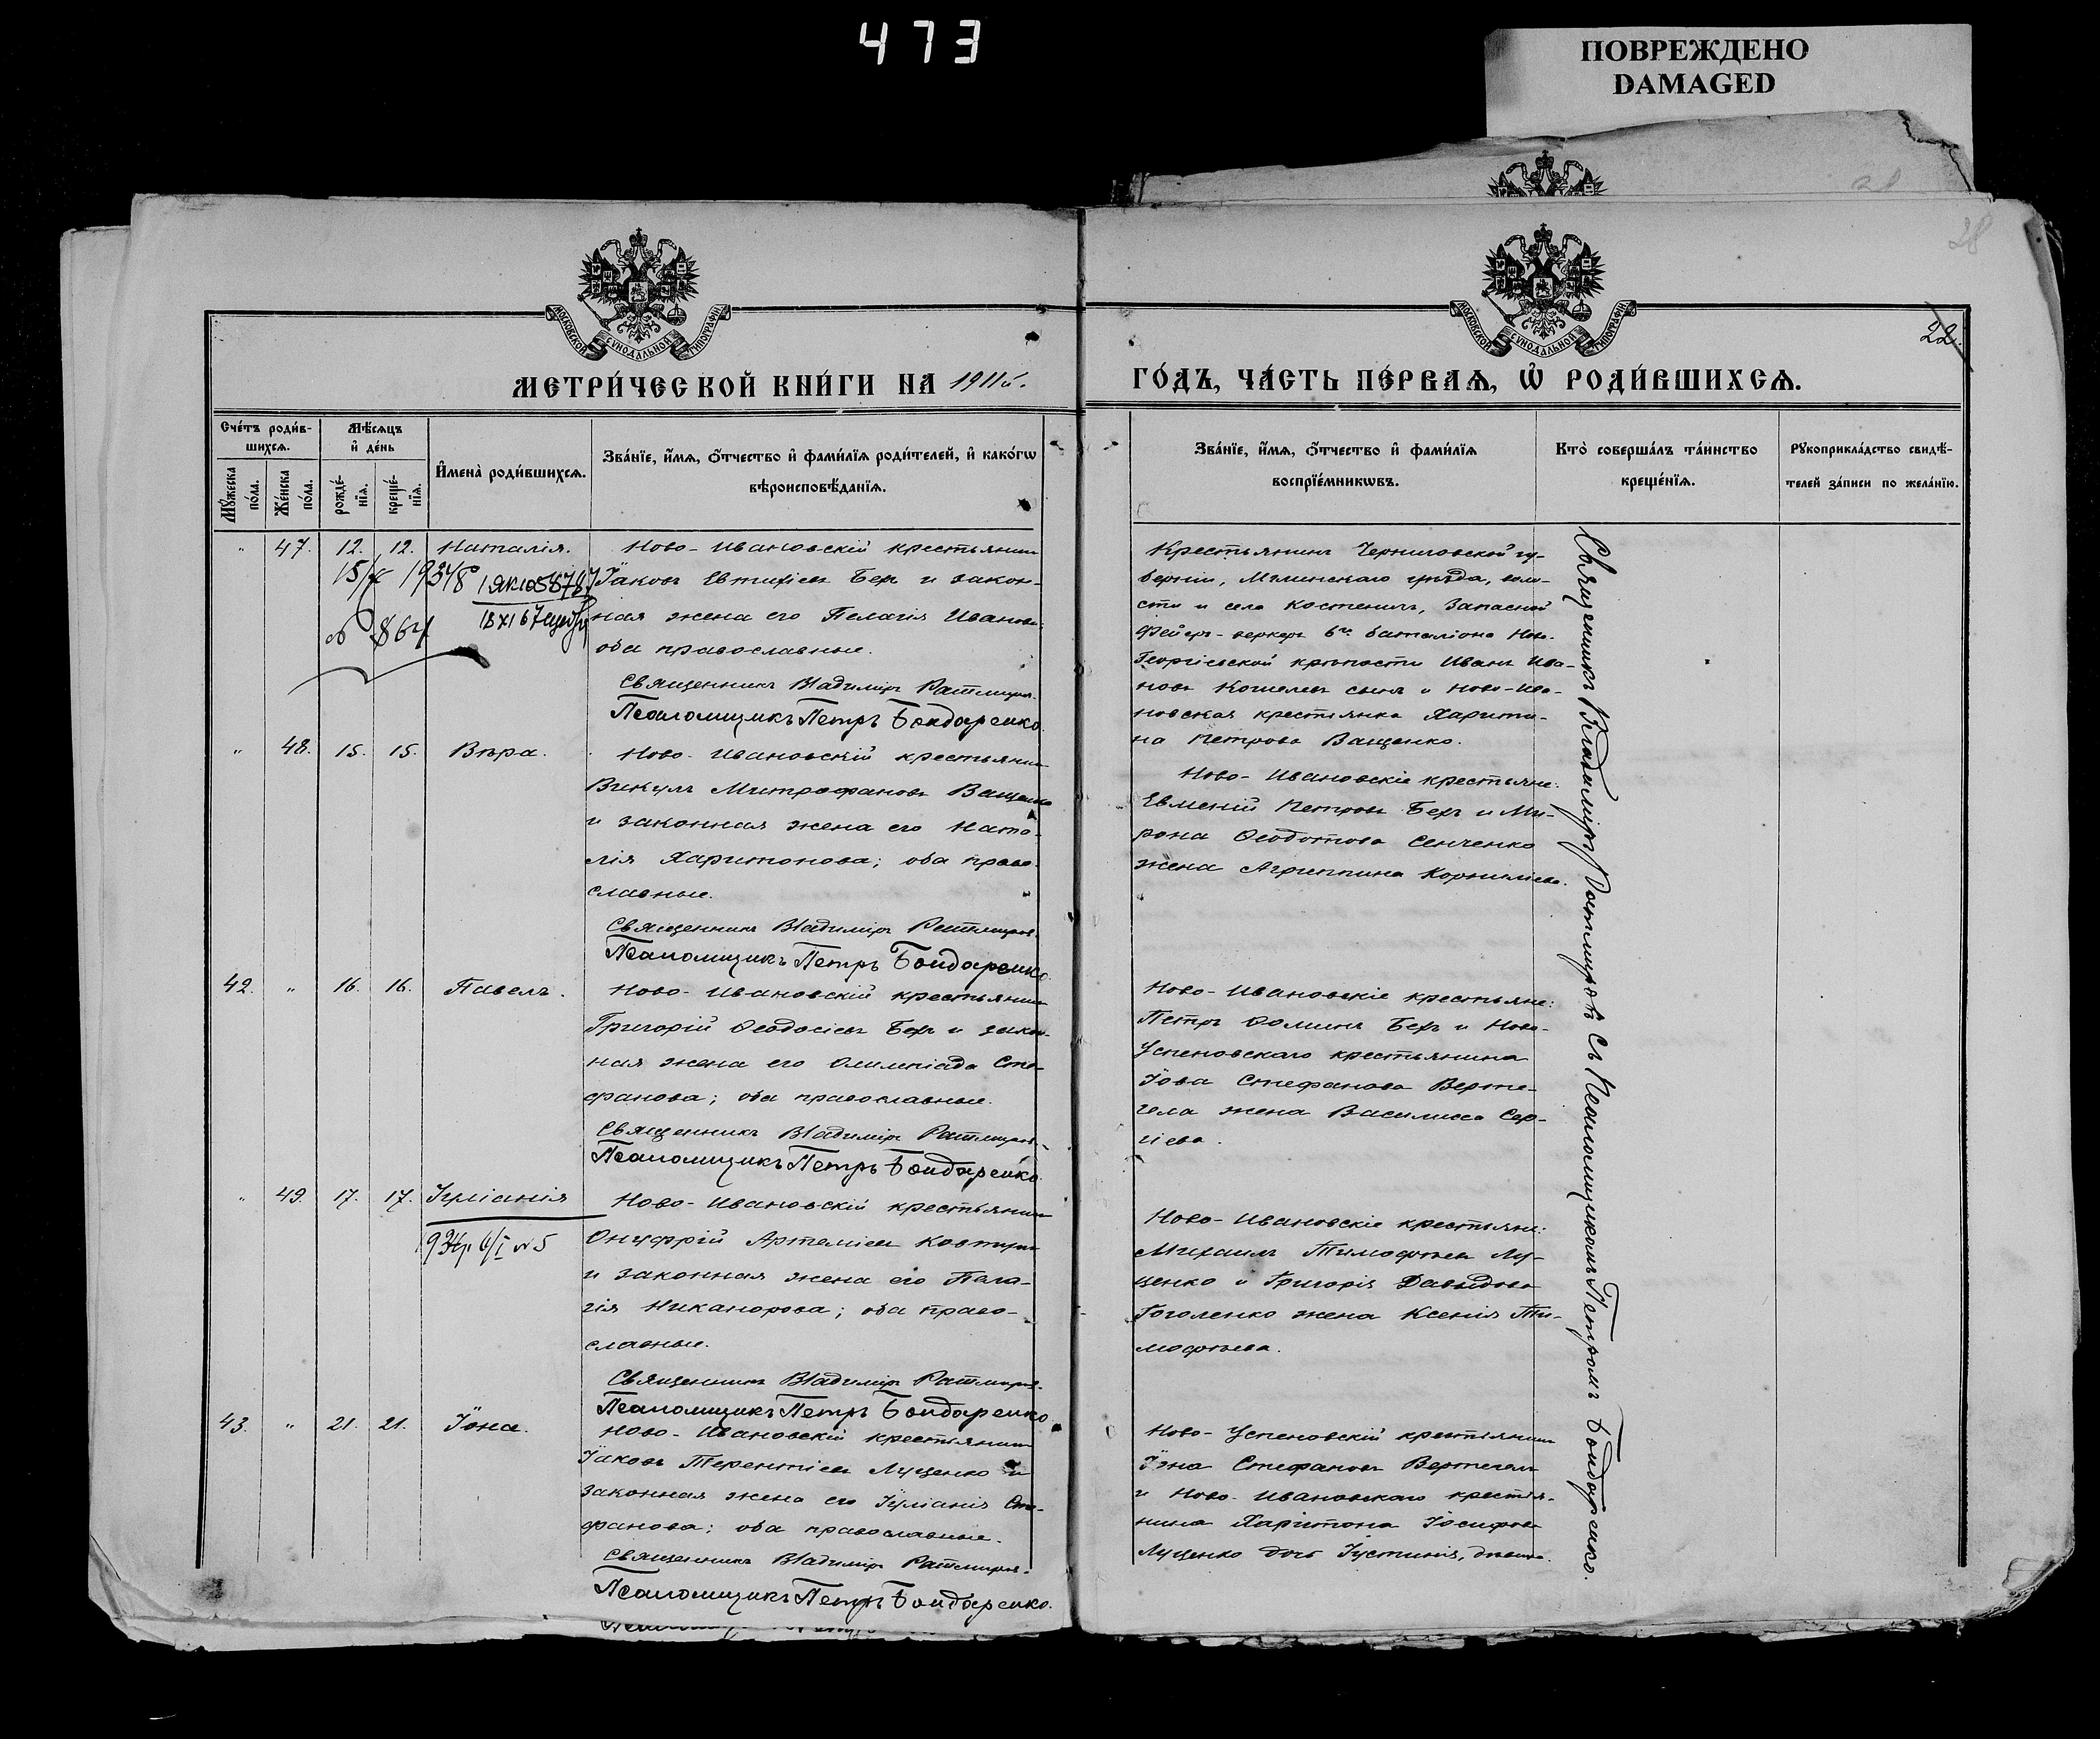 473
ПОВРЕЖДЕНО
DAMAGED
28
22.
МОСКОВСКОЙ СѴНОДАЛЬНОЙ ТИПОГРАФІИ
МОСКОВСКОЙ СѴНОДАЛЬНОЙ ТИПОГРАФІИ
МЕТРИ́ЧЕСКОЙ КНИ́ГИ НА 1911й.
ГО́ДЪ, ЧА́СТЬ ПЕ́РВАѦ, Ѡ҆ РОДИ́ВШИХСѦ.
Сче́тъ роди́в-
шихсѧ.
Мꙋ́жеска по́ла.
Же́нска по́ла.
Мѣ́сѧцъ
и҆ де́нь
рожде́-нїѧ.
креще́-нїѧ.
И҆мена̀ роди́вшихсѧ.
Зва́нїе, и҆́мѧ, ѻ҆́тчество и҆ фами́лїѧ роди́телей, и҆ како́гѡ
вѣроисповѣ́данїѧ.
Зва́нїе, и҆́мѧ, ѻ҆́тчество и҆ фами́лїѧ
воспрїе́мникѡвъ.
Кто̀ соверша́лъ та́инство
креще́нїѧ.
Рꙋкоприкла́дство свидѣ́-
телей за́писи по жела́нїю.
" 47. 12. 12. Наталія.
Ново-Ивановскій крестьянинъ
Іаковъ Евтихіевъ Бехъ и закон-
ная жена его Пелагія Иванова;
оба православные.
Священникъ Владиміръ Ратмировъ.
Псаломщикъ Петръ Бондаренко.
Крестьянинъ Черниговской гу-
берніи, Мглинскаго уѣзда, воло-
сти и села Костеничъ, запасной
фейер-веркеръ 6го баталіона Ново-
Георгіевской крѣпости Иванъ Ива-
новъ Кошелевъ сынъ и Ново-Ива-
новская крестьянка Харити-
на Петрова Ващенко.
" 48. 15. 15. Вѣра.
Ново-Ивановскій крестьянинъ
Викулъ Митрофановъ Ващенко
и законная жена его Ната-
лія Харитонова; оба право-
славные.
Священникъ Владиміръ Ратмировъ.
Псаломщикъ Петръ Бондаренко.
Ново-Ивановскіе крестьяне:
Евменій Петровъ Бехъ и Ми-
рона Ѳеодотова Сенченко
жена Агриппина Корниліева.
42. " 16. 16. Павелъ.
Ново-Ивановскій крестьянинъ
Григорій Ѳеодосіевъ Бехъ и закон-
ная жена его Олимпіада Сте-
фанова; оба православные.
Священникъ Владиміръ Ратмировъ.
Псаломщикъ Петръ Бондаренко.
Ново-Ивановскіе крестьяне:
Петръ Ѳоминъ Бехъ и Ново-
Успеновскаго крестьянина
Іова Стефанова Верте-
гела жена Василисса Сер-
гіева.
" 49. 17. 17. Іуліанія
Ново-Ивановскій крестьянинъ
Онуфрій Артеміевъ Ковтунъ
и законная жена его Пела-
гія Никанорова; оба право-
славные.
Священникъ Владиміръ Ратмировъ.
Псаломщикъ Петръ Бондаренко.
Ново-Ивановскіе крестьяне:
Михаилъ Тимофѣевъ Лу-
ценко и Григорія Давыдова
Гоголенко жена Ксенія Ти-
мофѣева.
43. " 21. 21. Іона.
Ново-Ивановскій крестьянинъ
Іаковъ Терентіевъ Луценко и
законная жена его Іуліанія Сте-
фанова; оба православные.
Священникъ Владиміръ Ратмировъ.
Псаломщикъ Петръ Бондаренко.
Ново-Успеновскій крестьянинъ
Іона Стефановъ Вертегелъ
и Ново-Ивановскаго крестья-
нина Харитона Іосифова
Луценко дочь Іустинія, дѣвица.
Священникъ Владиміръ Ратмировъ съ Псаломщикомъ Петромъ Бондаренко.